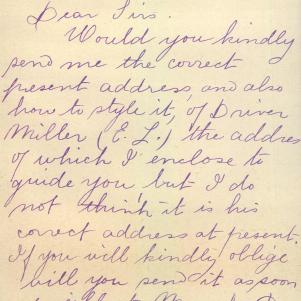 Dear Sirs.
Would you kindly
send me the correct
present address, and also
how to style it, of Driver
Miller (E. L.) the address
of which I enclose to
guide you, but I do
not think it is his
correct address at present.
If you will kindly oblige
will you send it as soon